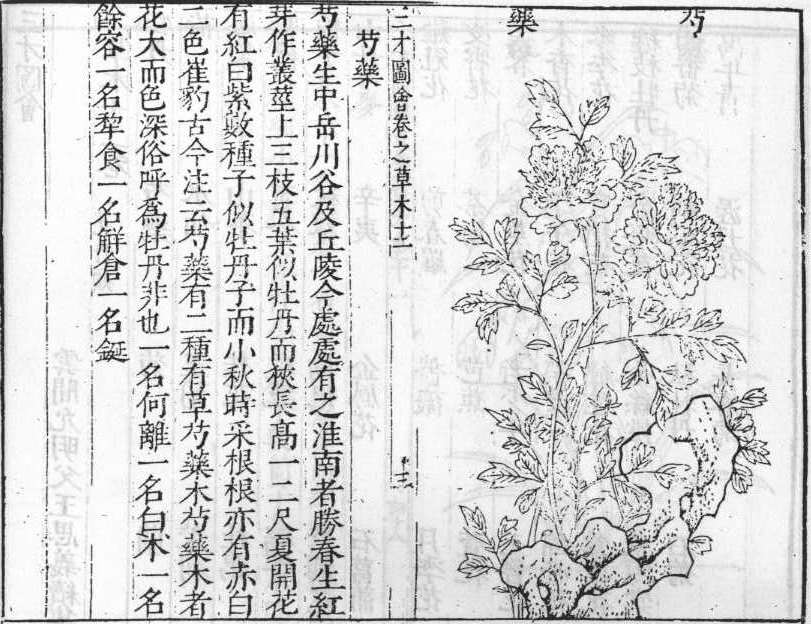 芍藥
三才圖會卷之草木十二
芍藥
芍藥生中岳川谷及丘陵今處處有之淮南者勝春生紅
芽作叢莖上三枝五葉似牡丹而狹長高一二尺夏開花
有紅白紫數種子似牡丹子而小秋時采根根亦有赤白
二色崔豹古今注云芍藥有二種有草芍藥木芍藥木者
花大而色深俗呼爲牡丹非也一名何離一名白木一名
餘容一名犂食一名觧倉一名鋋